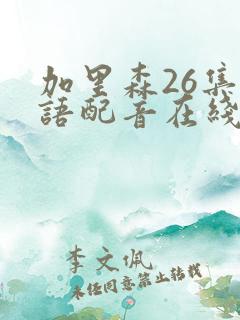 加里森26集
語配音在綫
李文佩
未经同意禁止转载